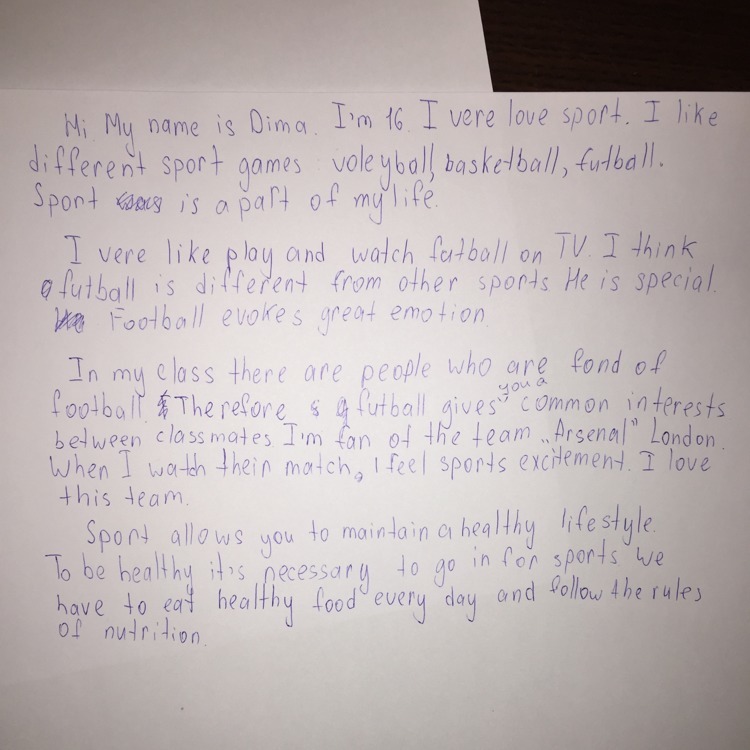 Hi. My name is Dima. I'm 16. I vere love sport. I like
different sport games: voleyball, basketball, futball.
Sport is a part of my life.
I vere like play and watch futball on TV. I think
futball is different from other sports He is special.
Football evokes great emotion.
In my class there are people who are fond of
football. Therefore futball gives you a common interests
between classmates I'm fan of the team „Arsenal" London.
When I watch their match, I feel sports excitement. I love
this team.
Sport allows you to maintain a healthy lifestyle.
To be healthy it's necessary to go in for sports we
have to eat healthy food every day and follow the rules
of nutrition.